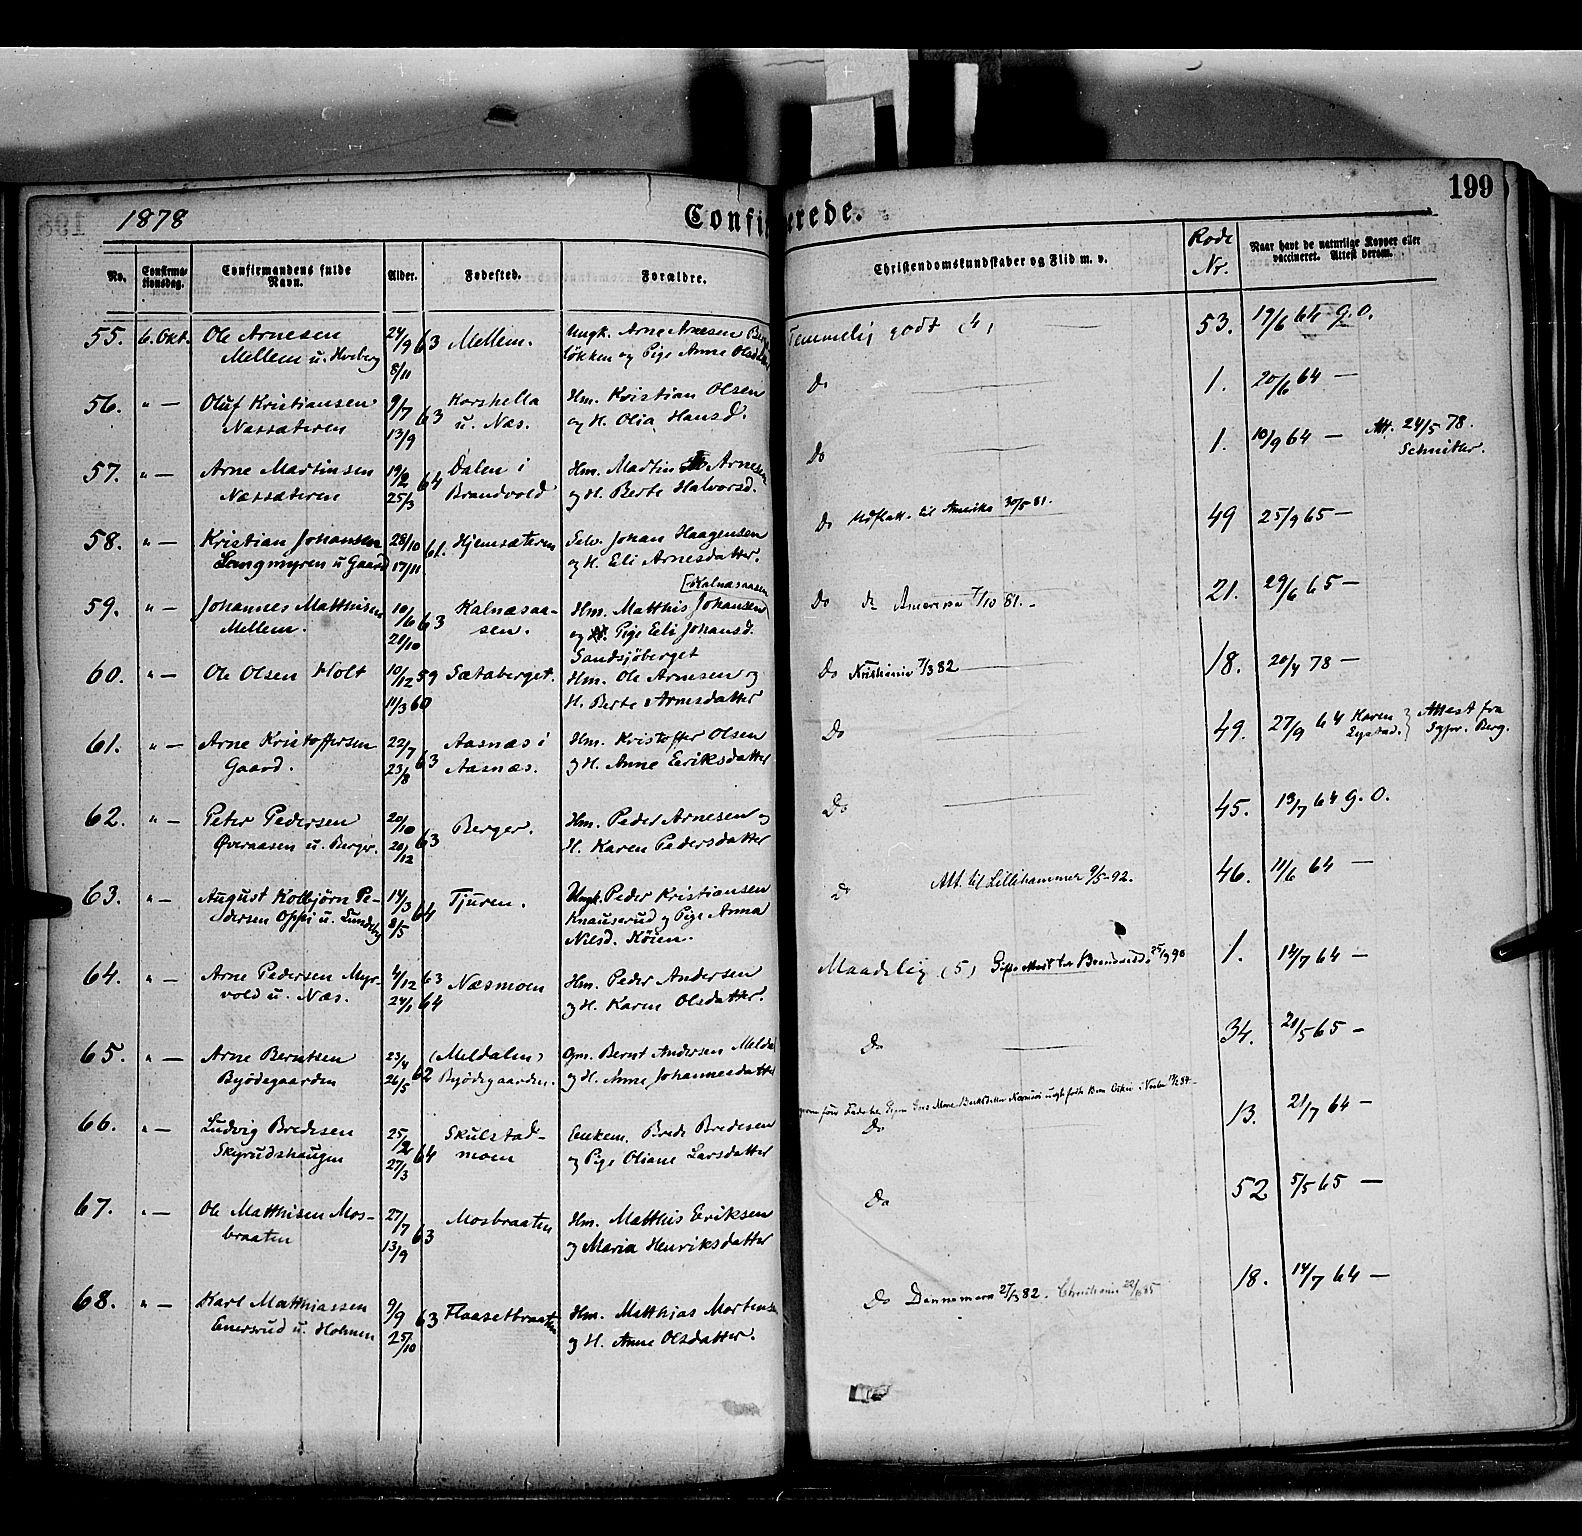 1878
Confirmerede.
199
No.
Confirma-
tionsdag.
Confirmandens fulde
Navn.
Alder.
Fødested.
Forældre.
Christendomskundskaber og Flid m. v.
Rode
Nr.
Naar havt de naturlige Kopper eller
vaccineret. Attest derom.
55. 6. Okt. Ole Arnesen 24/9 63 Mellem. Ungk. Arne Arnesen Temmelig godt (4) 53. 19/6 64 g. o.
Mellem u. Hoeberg 8/11 løkken og Pige Anne
56. " — Oluf Kristiansen 9/7 63 Korshella Hm. Kristian Olsen Do 1. 20/6 64 —
Næssæteren 13/9 u. Næs. og H. Olia Hansd.
57. " — Arne Martinsen 19/2 64 Dalen i Hm. Martin Arnesen Do 1. 10/9 64 — Att. 24/5 78.
Næssæteren 25/3 Brandvold og H. Berte Halvorsd. Schnitler.
58. " — Kristian Johansen 28/10 61. Hjemsæteren Selv. Johan Haagensen Do Udflytt. til Amerika 30/5 81. 49 25/9 65 —
Langmyren u Gaard 17/11 og H. Eli Arnesdatter.
[Kalnæsaasen
59. " — Johannes Matthisen 10/6 63 Kalnæsaa- Hm. Matthis Johansen Do do Amerika 7/10 81. - 21. 29/6 65 —
Mellem. 21/10 sen. og Pige Eli Johansd.
Sandsjøberget
60. " — Ole Olsen Holt 10/12 59 Sætaberget. Hm. Ole Arnesen og Do Kristiania 7/3 82 18. 20/4 78 —
11/3 60 H. Berte Arnesdatter
61. " — Arne Kristoffersen 22/7 63 Aasnæs i Hm. Kristoffer Olsen Do 49. 27/9 64 Karen } Attest fra
Gaard. 23/8 Aasnæs. og H. Anne Eriksdatter Sgpr. Berg.
62. " — Peter Pedersen 20/10 63 Berger. Hm. Peder Arnesen og Do 45. 13/7 64 g. o.
Øveraasen u. Berger. 20/12 H. Karen Pedersdatter
63. " — August Kolbjørn Pe- 14/3 64 Tjuren. Ungk. Peder Kristiansen Do Att. til Lillehammer 9/5-92. 46. 11/6 64 —
dersen Oppi u. Lundeby 8/5 Knauserud og Pige Anna
Nilsd. Köien.
64. " — Arne Pedersen Myr- 4/12 63 Næsmoen Hm. Peder Andersen Maadelig (5) 1. 14/7 64 —
vold u. Næs. 24/1 64 og H. Karen Olsdatter.
65. " — Arne Berntsen 23/4 62 (Meldalen) Gm. Bernt Andersen Do 34. 21/5 65 —
Byødegaarden 26/5 Byødegaarden. og H. Anne Johannesdatter
66. " — Ludvig Bredesen 25/2 64 Skulstad- Enkem. Brede Bredesen Do 13. 21/7 64 —
Skyrudshaugen 27/3 moen og Pige Oliane Larsdatter
67. " — Ole Matthisen Mos- 27/7 63 Mosbraaten Hm. Matthis Eriksen Do 52 5/5 65 —
braaten 13/9 og Maria Henriksdatter
68. " — Karl Matthiassen 9/9 63 Flaasetbraaten Hm. Matthias Mortensen Do Dannemora 27/3 82. Christiania 18. 14/7 64 —
Enersrud u. Holmen 25/10 og H. Anne Olsdatter.